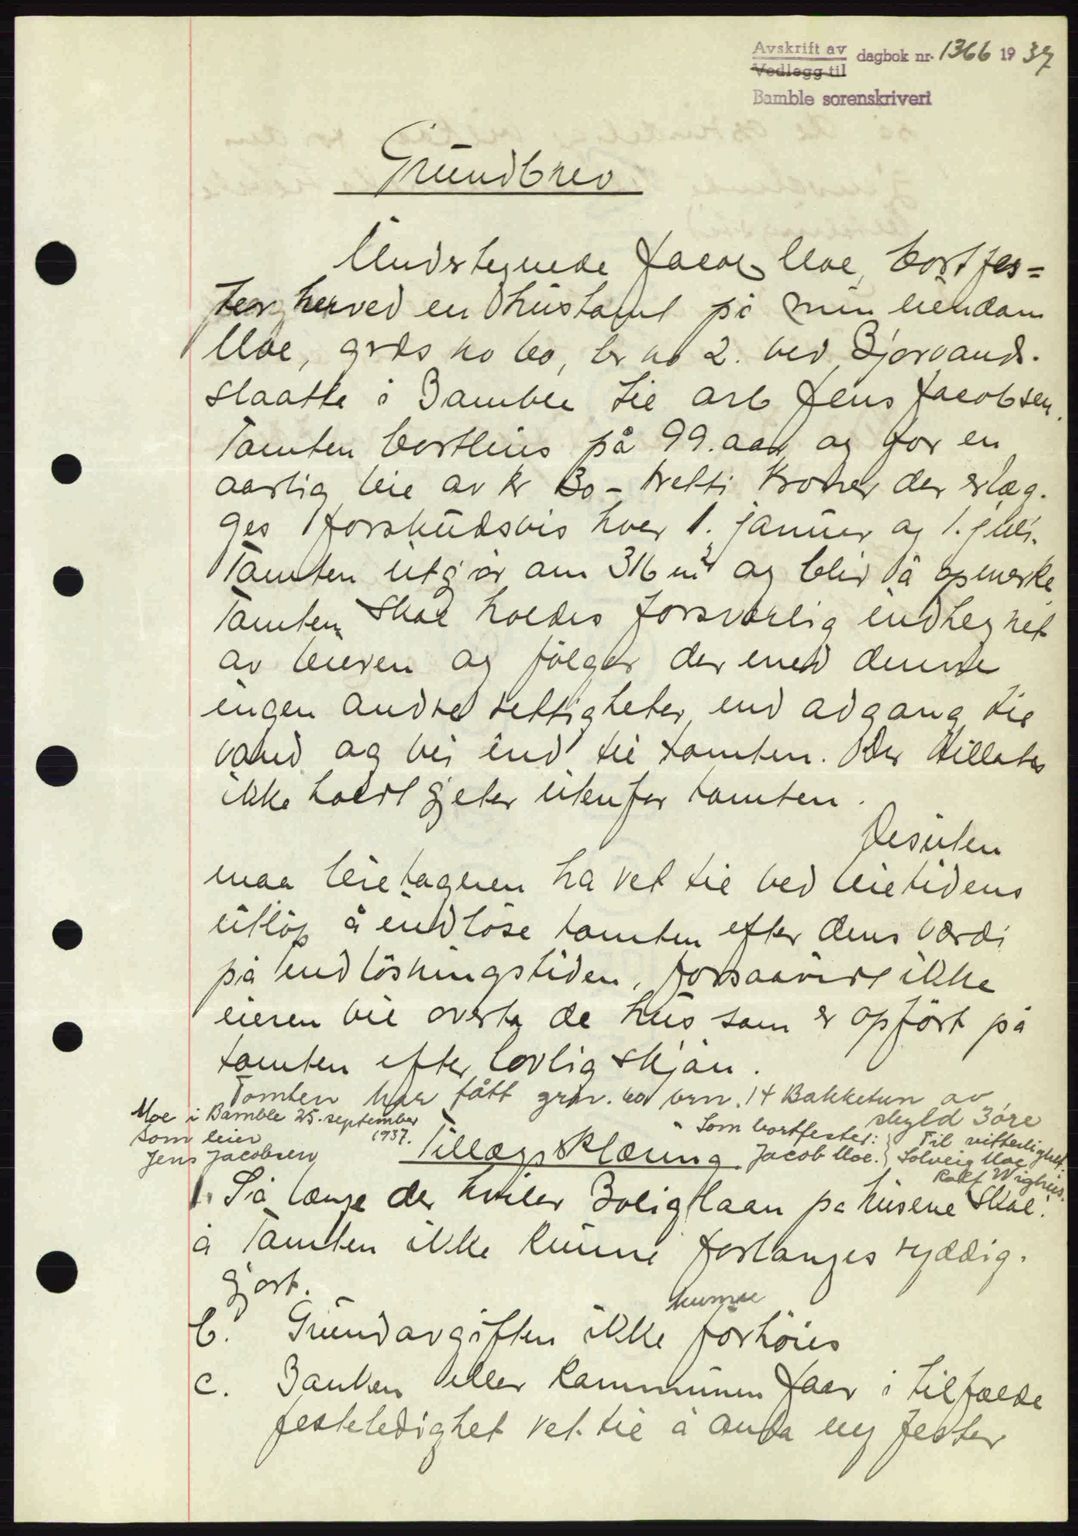 Avskrift av
Vedlegg til
dagbok nr. 1366 19 37
Bamble sorenskriveri
Grundbrev
Undertegnede Jacob Moe, bortfes=
ter herved en hustomt på min eiendom
Moe, grds no 60, br no 2. ved Bjorvand-
slaatte i Bamble til arb Jens Jacobsen.
Tomten bortleies på 99. aar og for en
aarlig leie av kr 30 - tretti kroner der erlæg-
ges forskudsvis hver 1. januar og 1. juli.
Tomten utgjør om 316 m² og blir å opmerke
Tomten skal holdes forsvarlig indhegnet
av leieren og følger der med denne
ingen andre rettigheter end adgang til
vand og vei ind til tomten. Der tillates
ikke holdt gjeter utenfor tomten.
Desuten
maa leietageren ha ret til ved leietidens
utløp å indløse tomten efter dens værdi
på indløsningstiden, forsaavidt ikke
eieren vil overta de hus som er opført på
tomten efter lovlig skjøn.
Tomten har fått grnr. 60 brn. 14 Bakketun av
skyld 3 øre
Moe i Bamble 25. september
1937.
Som leier
Jens Jacobsen
Som bortfester:
Jacob Moe.
Til vitterlighet:
Solveig Moe
Rolf Wighus.
Tillægsklæring
1. Så længe der hviler Boliglaan på husene skal.
a Tomten ikke kunne forlanges ryddig-
gjort.
b. Grundavgiften ikke kunne forhøies
c. Banken eller kommunen faar i tilfælde
festeledighet ret til å anta ny fester